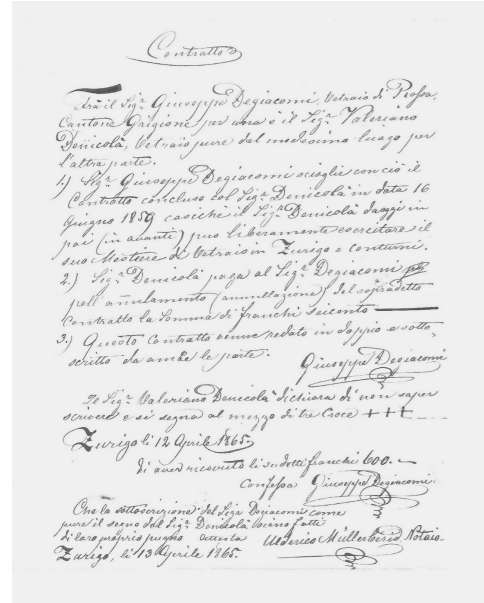 Contratto
tra il Sigr. Giuseppe Degiacomi, Vetraio di Rossa,
Cantone Grigione per una e il Sigr. Valeriano
Denicolà, Vetraio pure dal medesimo luogo per
l'altra parte.
1.) Sigr. Giuseppe Degiacomi scioglie con ciò il
Contratto concluso col Sigr. Denicolà in data 16
Giugno 1859 cosichè il Sigr. Denicolà daggi in
poi (in avante) puo liberamente esercitare il
suo Mestiere di Vetraio in Zurigo e contorni.
2.) Sigr. Denicolà paga al Sigr. Degiacomi
pell annulamento (annullazione) del sopradetto
contratto la Somma di franchi seicento
3.) Questo Contratto venne redato in doppio e sotto-
scritto da ambe le parte.
Giuseppe Degiacomi
Io Sigr. Valeriano Denicolà dichiara di non saper
scrivere e si segna al mezzo di tre Croce +++
Zurigo li 12 Aprile 1865.
di aver ricevuto li sudetti franchi 600.
Confessa Giuseppe Degiacomi.
Che la sottoscrizione del Sigr. Degiacomi come
pure il segno del Sigr. Denicolà siano fatte
di loro proprio pugno attesta Ulderico Müller Notaio.
Zurigo, li 13 Aprile 1865.